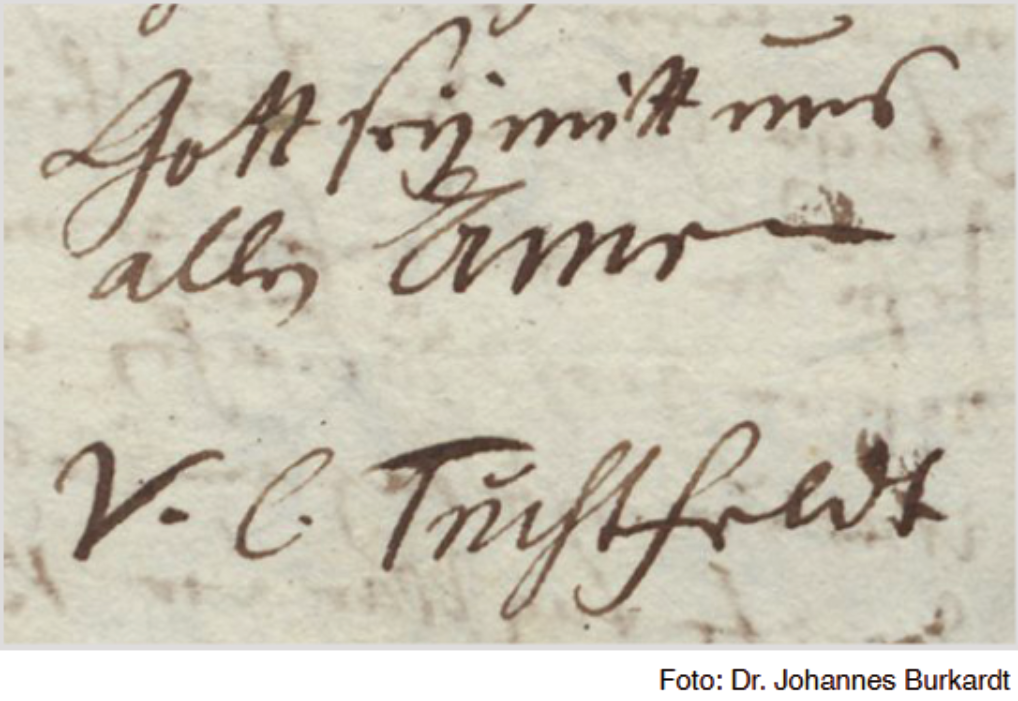 Gott seÿ mitt uns
allen Amen
V. C. Tuchtfeldt
Foto: Dr. Johannes Burkardt